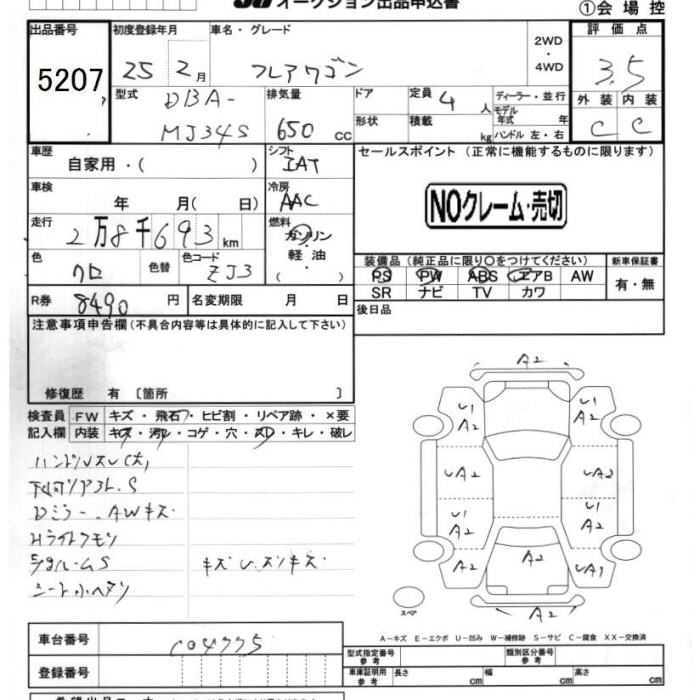 オークション出品申込書
①会場控
出品番号
5207
初度登録年月
25 2月
車名・グレード
フレアワゴン
2WD
・
4WD
評価点
3.5
外装 内装
C C
型式
DBA-
MJ34S
排気量
650 cc
ドア
形状
定員 4 人
積載 kg
ディーラー・並行
モデル
年式 年
ハンドル 左・右
車歴
自家用・( )
シフト
IAT
車検
年 月( 日)
冷房
AAC
走行
2万8千693 km
燃料
ガソリン
・
軽油
( )
色
クロ
色替
色コード
ZJ3
R券
8490 円
名変期限 月 日
セールスポイント (正常に機能するものに限ります)
NOクレーム・売切
装備品 (純正品に限り〇をつけてください)
PS PW ABS エアB AW
SR ナビ TV カワ
新車保証書
有・無
後日品
注意事項申告欄(不具合内容等は具体的に記入して下さい)
修復歴 有 〔箇所 〕
検査員 FW キズ・飛石・ヒビ割・リペア跡・×要
記入欄 内装 キズ・汚れ・コゲ・穴・スレ・キレ・破レ
ハンドルスレ(大)
下回リアフト.S
Dミラー.AWキズ
Hライトクモリ
S
キズU.スリキズ
シート小ヘタリ
A2
U1 A2
U1 A2
UA2
UA2
U1 A2
U1 A2
A2
A2
UA1
A2
スペア
A-キズ E-エクボ U-凹み W-補修跡 S-サビ C-腐食 XX-交換済
車台番号
604775
登録番号
型式指定番号
参考
類別区分番号
参考
車庫証明用
参考
長さ cm
幅 cm
高さ cm